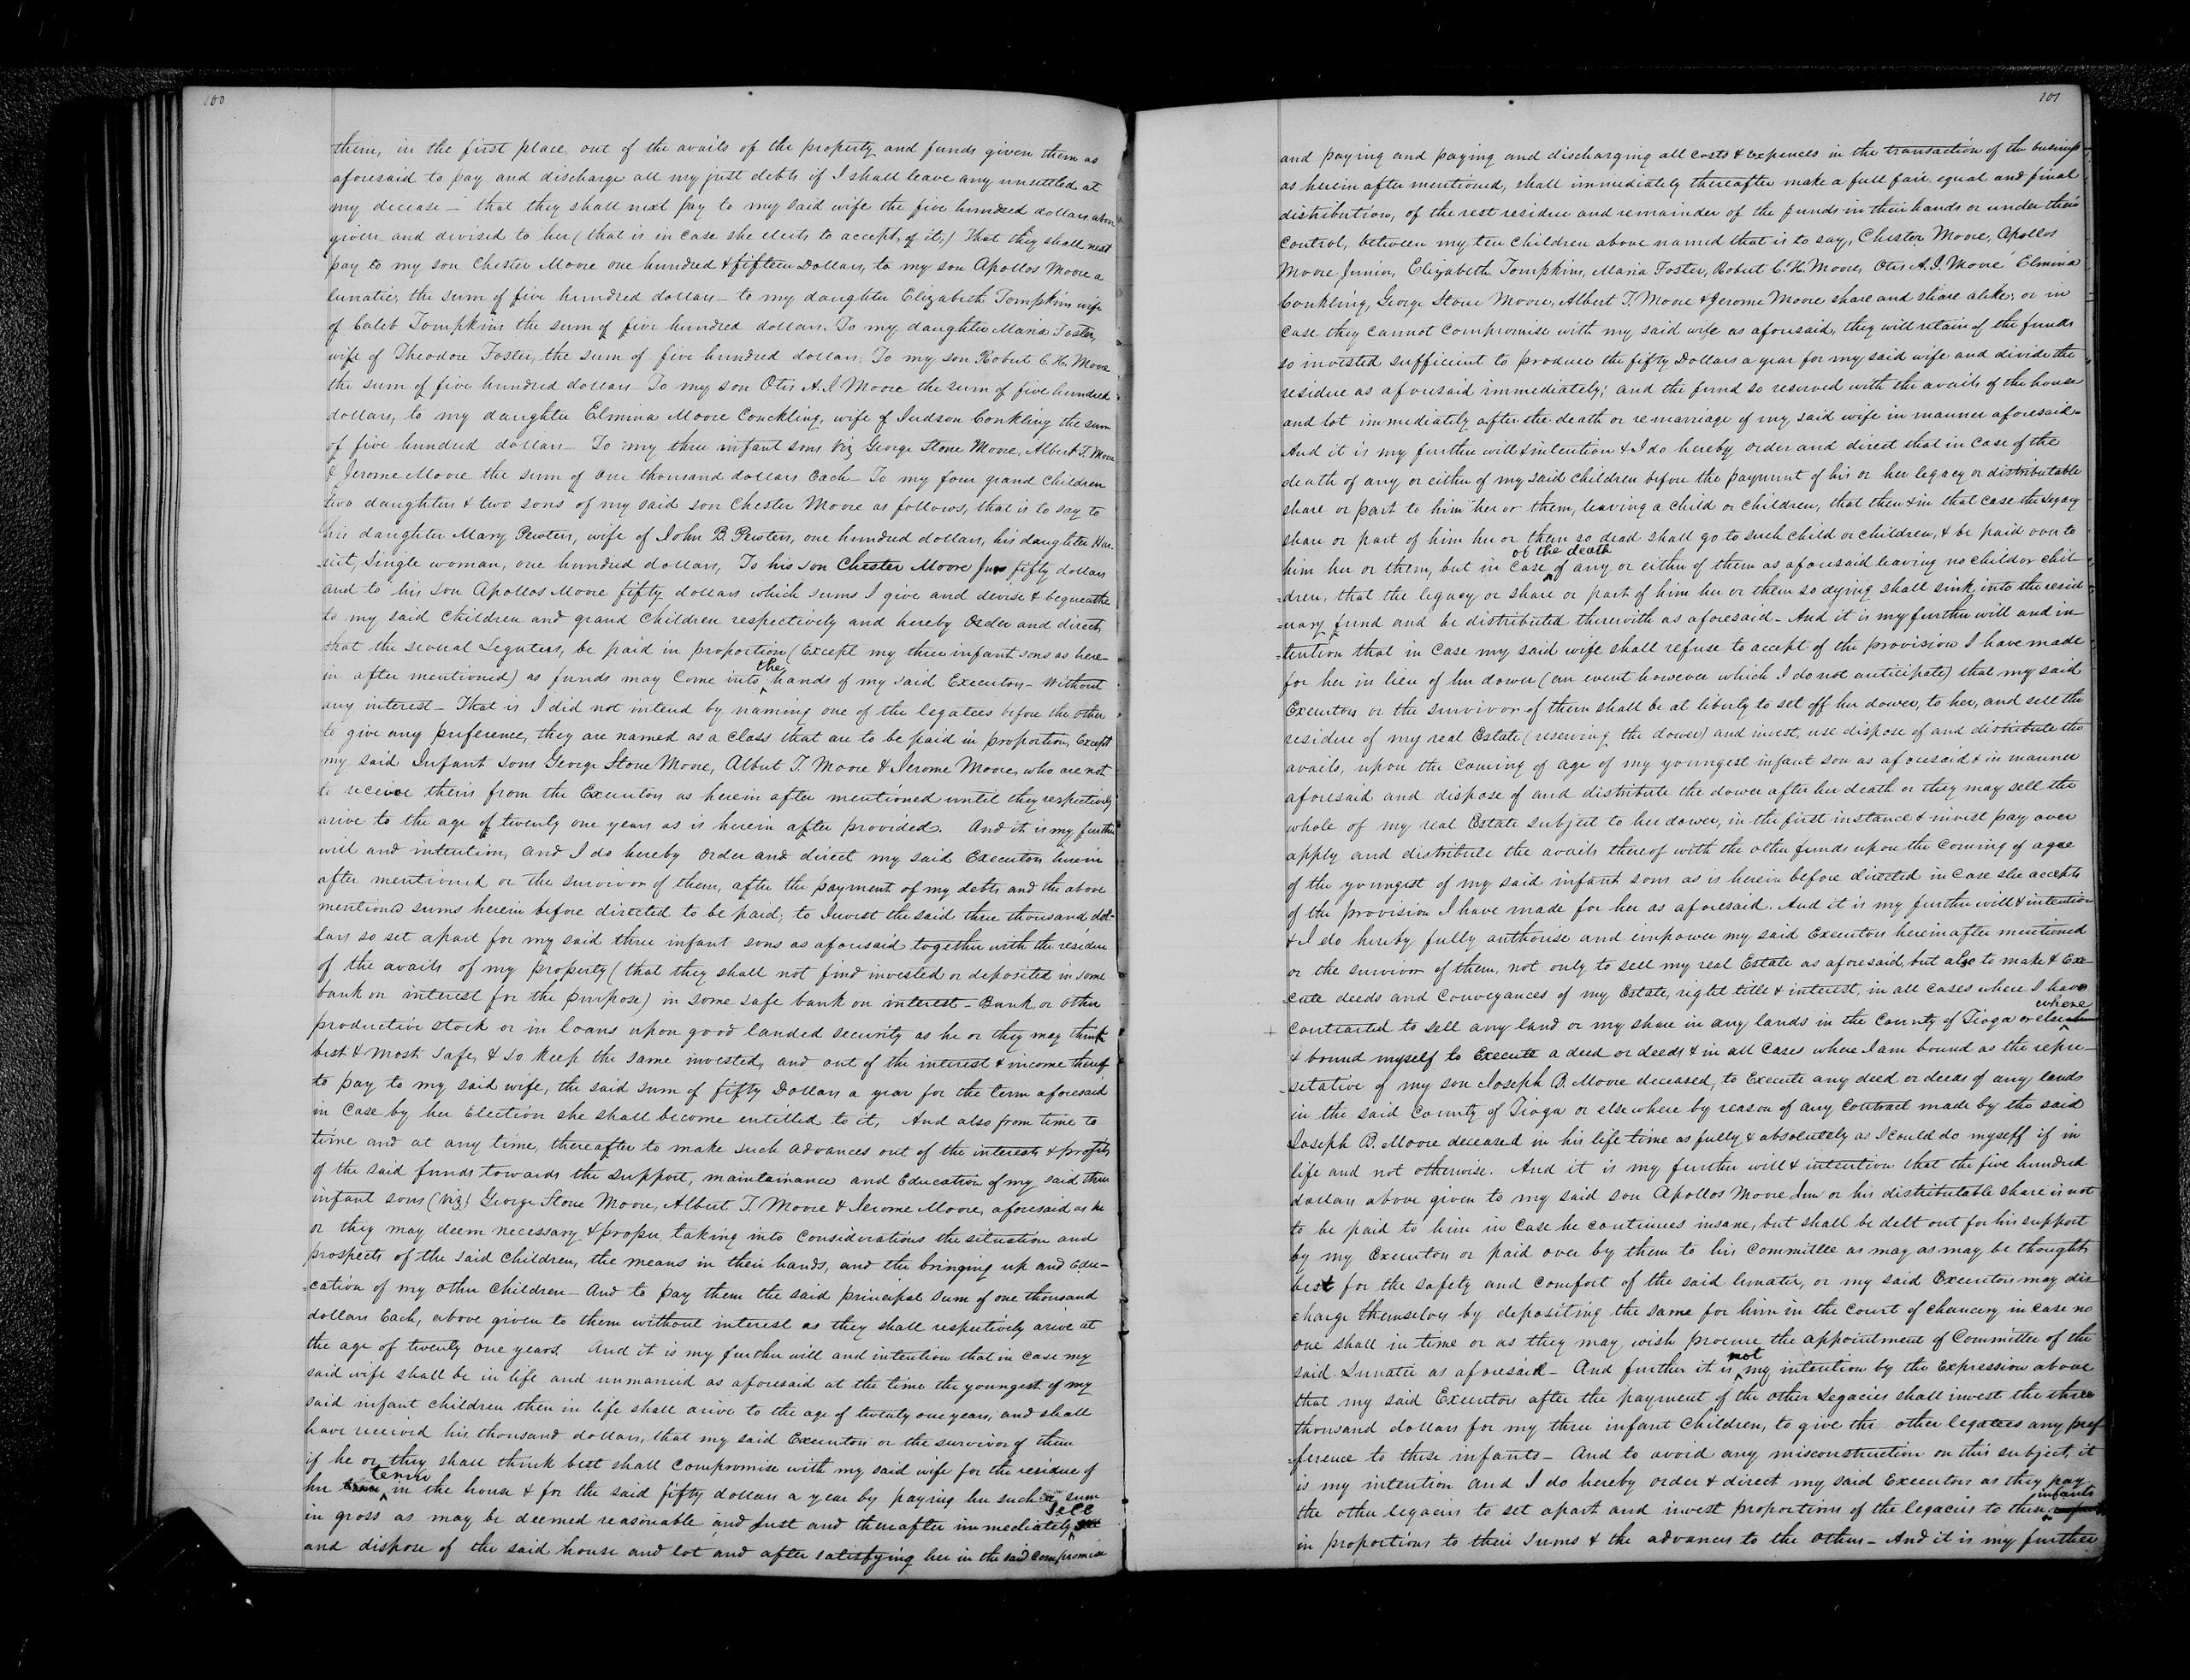 100
them, in the first place out of the avails of the property and funds given them as
aforesaid to pay and discharge all my just debts if I shall leave any unsettled at
my decease – that they shall next pay to my said wife the five hundred dollars above
given and devised to her (that is in case she elects to accept of it,) That they shall next
pay to my son Chester Moore one hundred & fifteen Dollars, to my son Apollos Moore a
lunatic, the sum of five hundred dollars – to my daughter Elizabeth Tompkins wife
of Caleb Tompkins the sum of five hundred dollars. To my daughter Maria Foster,
wife of Theodore Foster, the sum of five hundred dollars; To my son Robert C. H. Moore
the sum of five hundred dollars To my son Otis A. I Moore the sum of five hundred
dollars, to my daughter Elmina Moore Conckling, wife of Judson Conkling the sum
of five hundred dollars – To my three infant sons viz George Stone Moore, Albert T. Moore
& Jerome Moore the sum of one thousand dollars Each – To my four grand children
two daughters & two sons of my said son Chester Moore as follows, that is to say to
his daughter Mary Pewters, wife of John B. Pewters, one hundred dollars, his daughter Har-
riet, single woman, one hundred dollars, To his son Chester Moore Junr fifty dollars
and to his son Apollos Moore fifty dollars which sums I give and devise & bequeathe
to my said children and grand children respectively and hereby order and direct
that the several Legatees, be paid in proportion (Except my three infant sons as here-
in after mentioned) as funds may come into the hands of my said Executors – without
any interest – That is I did not intend by naming one of the legatees before the other
to give any preference, they are named as a class that are to be paid in proportion, Except
my said Infant sons George Stone Moore, Albert T. Moore & Jerome Moore, who are not
to receive theirs from the Executors as herein after mentioned until they respectively
arive to the age of twenty one years as is herein after provided. And it is my further
will and intention, and I do hereby order and direct my said Executors herein
after mentioned or the survivor of them, after the payment of my debts and the above
mentioned sums herein before directed to be paid; to Invest the said three thousand dol-
lars so set apart for my said three infant sons as aforesaid together with the residue
of the avails of my property (that they shall not find invested or deposited in some
bank on interest for the purpose) in some safe bank on interest – Bank or other
productive stock or in loans upon good landed security as he or they may think
best & most safe, & so keep the same invested, and out of the interest & income thereof
to pay to my said wife, the said sum of fifty Dollars a year for the term aforesaid
in case by her Election she shall become entitled to it, And also from time to
time and at any time, thereafter to make such advances out of the interests & profits
of the said funds towards the support, maintainance and Education of my said three
infant sons (viz) George Stone Moore, Albert T. Moore & Jerome Moore, aforesaid as he
or they may deem necessary & proper taking into considerations the situation and
prospects of the said children, the means in their hands, and the bringing up and Edu-
-cation of my other children – And to pay them the said principal sum of one thousand
dollars Each, above given to them without interest as they shall respectively arive at
the age of twenty one years. And it is my further will and intention that in case my
said wife shall be in life and unmarried as aforesaid at the time the youngest of my
said infant children then in life shall arive to the age of twenty one years, and shall
have received his thousand dollars, that my said Executors or the survivor of them
if he or they shall think best shall compromise with my said wife for the residue of
her term in the house & for the said fifty dollars a year by paying her such a sum
in gross as may be deemed reasonable and Just and thereafter immediately sell
and dispose of the said house and lot and after satisfying her in the said compromise
101
and paying and paying and discharging all costs & expences in the transaction of the business
as herein after mentioned, shall immediately thereafter make a full fair equal and final
distribution, of the rest residue and remainder of the funds in their hands or under their
control, between my ten children above named that is to say, Chester Moore, Apollos
Moore Junior, Elizabeth Tompkins, Maria Foster, Robert C. H. Moore, Otis A. I. Moore Elmina
Conkling, George Stone Moore, Albert T. Moore & Jerome Moore share and share alike; or in
case they cannot compromise with my said wife as aforesaid, they will retain of the funds
so invested sufficient to produce the fifty Dollars a year for my said wife and divide the
residue as aforesaid immediately; and the fund so reserved with the avails of the house
and lot immediately after the death or remarriage of my said wife in manner aforesaid–
And it is my further will & intention & I do hereby order and direct that in case of the
death of any or either of my said children before the payment of his or her legacy or distributable
share or part to him her or them, leaving a child or children, that then & in that case the legacy
share or part of him her or them so dead shall go to such child or children, & be paid over to
him her or them, but in case of the death of any or either of them as aforesaid leaving no child or chil-
-dren, that the legacy or share or part of him her or them so dying shall sink into the resid-
-uary fund and be distributed therewith as aforesaid – And it is my further will and in-
-tention that in case my said wife shall refuse to accept of the provision I have made
for her in lieu of her dower (an event however which I do not anticipate) that my said
Executors or the survivor of them shall be at liberty to set off her dower, to her, and sell the
residue of my real Estate (reserving the dower) and invest, use dispose of and distribute the
avails, upon the coming of age of my youngest infant son as aforesaid & in manner
aforesaid and dispose of and distribute the dower after her death or they may sell the
whole of my real Estate subject to her dower, in the first instance & invest pay over
apply and distribute the avails thereof with the other funds upon the coming of agae
of the youngest of my said infant sons as is herein before directed in case she accepts
of the provision I have made for her as aforesaid. And it is my further will & intention
& I do hereby fully authorise and empower my said Executors hereinafter mentioned
or the survivor of them, not only to sell my real Estate as aforesaid, but also to make & Exe-
cute deeds and conveyances of my Estate, right title & interest, in all cases where I have
contracted to sell any land or my share in any lands in the County of Tioga or else where
& bound myself to Execute a deed or deeds & in all cases where I am bound as the repre-
-setative of my son Joseph B. Moore deceased, to Execute any deed or deeds of any lands
in the said County of Tioga or elsewhere by reason of any contract made by the said
Joseph B. Moore deceased in his life time as fully & absolutely as I could do myself if in
life and not otherwise. And it is my further will & intention that the five hundred
dollars above given to my said son Apollos Moore Jun or his distributable share is not
to be paid to him in case he continues insane, but shall be delt out for his support
by my Executors or paid over by them to his Committee as may as may be thought
best for the safety and comfort of the said lunatic, or my said Executors may dis-
charge themselves by depositing the same for him in the court of chancery in case no
one shall in time or as they may wish procure the appointment of Committee of the
said Lunatic as aforesaid – And further it is not my intention by the Expression above
that my said Executors after the payment of the other Legacies shall invest the three
thousand dollars for my three infant children, to give the other legatees any pref-
-ference to these infants – And to avoid any misconstruction on this subject, it
is my intention and I do hereby order & direct my said Executors as they pay
the other legacies to set apart and invest proportions of the legacies to these infants
in proportions to their sums & the advances to the others – And it is my further